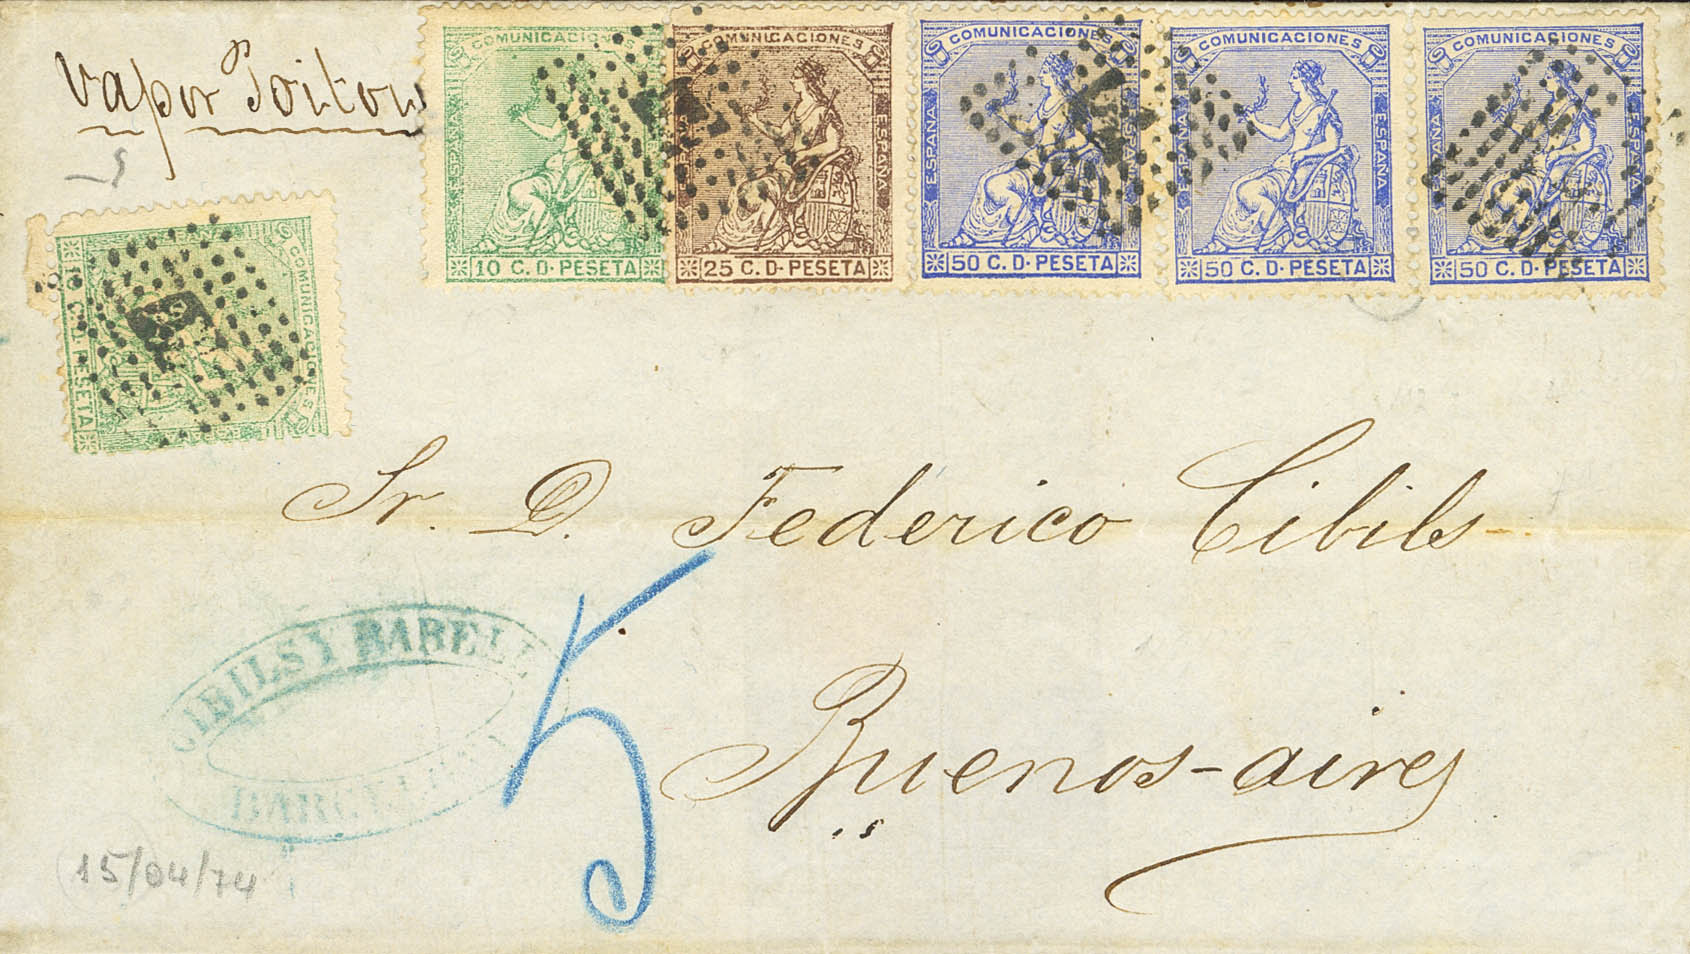 Vapor Poitou
COMUNICACIONES
ESPAÑA
ESPAÑA
10 C. D- PESETA
COMUNICACIONES
ESPAÑA
ESPAÑA
25 C. D- PESETA
COMUNICACIONES
ESPAÑA
ESPAÑA
50 C. D- PESETA
COMUNICACIONES
ESPAÑA
ESPAÑA
50 C. D- PESETA
COMUNICACIONES
ESPAÑA
ESPAÑA
50 C. D- PESETA
COMUNICACIONES
10 C. D- PESETA
Sr. D. Federico Cibils
5
CIBILS Y BABELL
BARCELONA
Buenos-aires
15/04/74